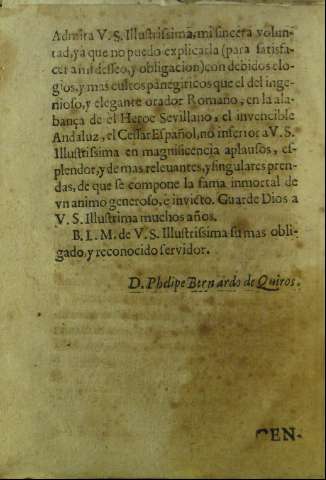 Admita V. S. Illustrissima, mi sincera volun-
tad, ya que no puedo explicarla (para satisfa-
cer a mi desseo, y obligacion) con debidos elo-
gios, y mas cultos panegiricos que el del inge-
nioso, y elegante orador Romano, en la ala-
bança de el Heroe Sevillano, el invencible
Andaluz, el Cessar Español, no inferior a V. S.
Illustrissima en magnificencia aplausos, es-
plendor, y de mas releuantes, y singulares pren-
das, de que se compone la fama inmortal de
vn animo generoso, e invicto. Guarde Dios a
V. S. Illustrima muchos años.
B. L. M. de V. S. Illustrissima su mas obli-
gado, y reconocido servidor.
D. Phelipe Bernardo de Quiros.
CEN-